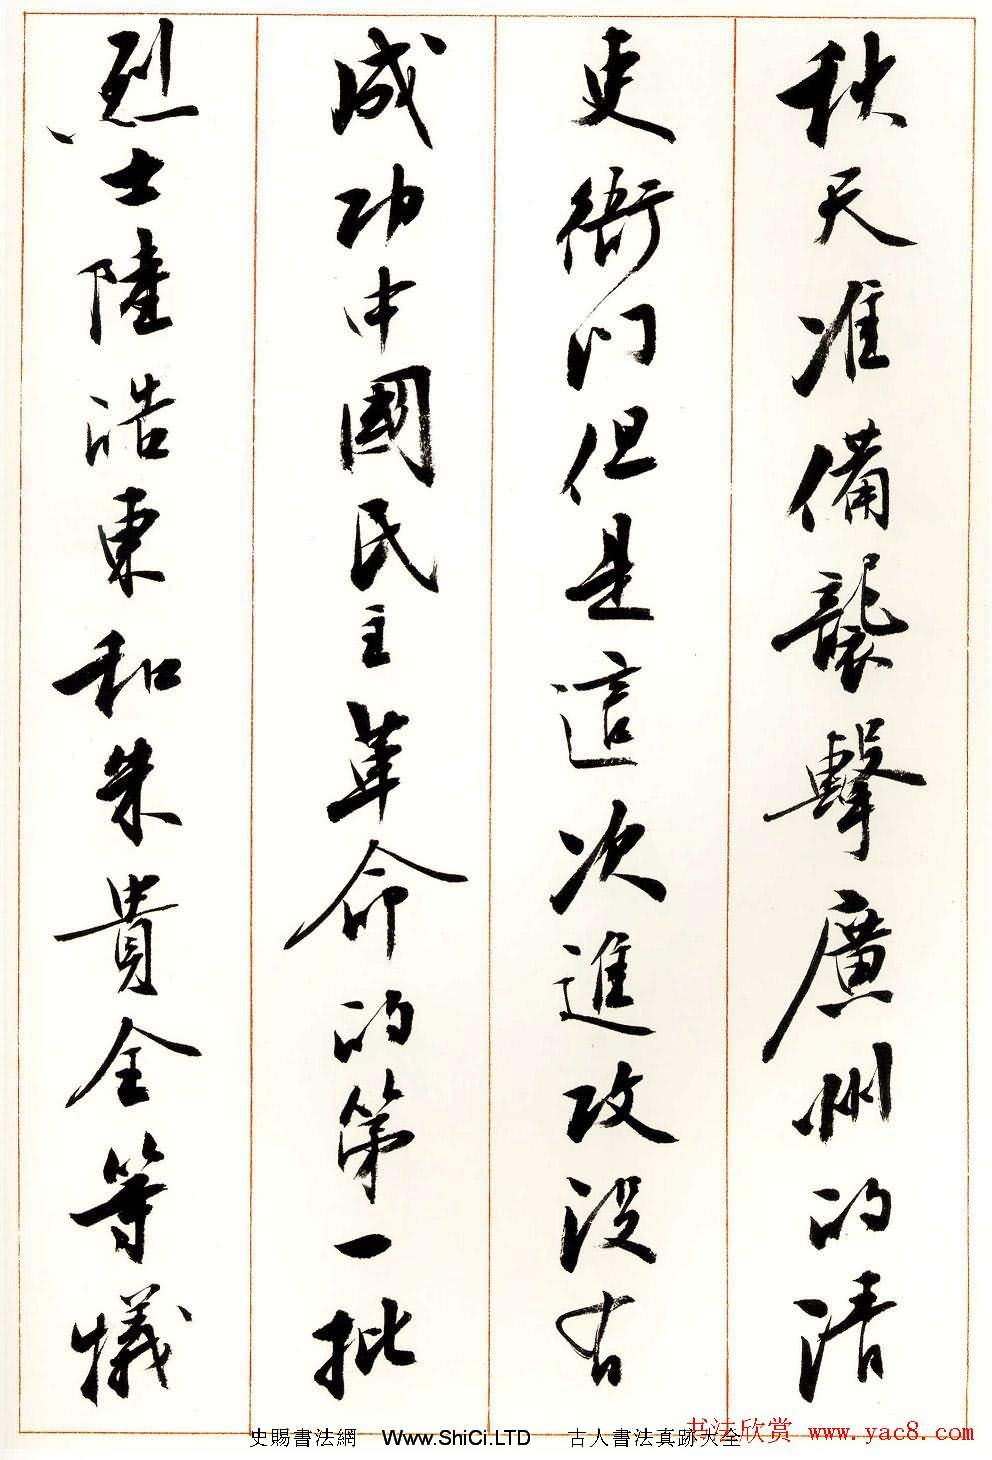 秋天准備襲擊廣州的清
吏衙门但是這次進攻没有
成功中國民主革命的第一批
烈士陸浩東和朱貴全等犠
史賜書法網 Www.ShiCi.LTD 古人書法真跡大全
书法欣赏 www.yac8.com